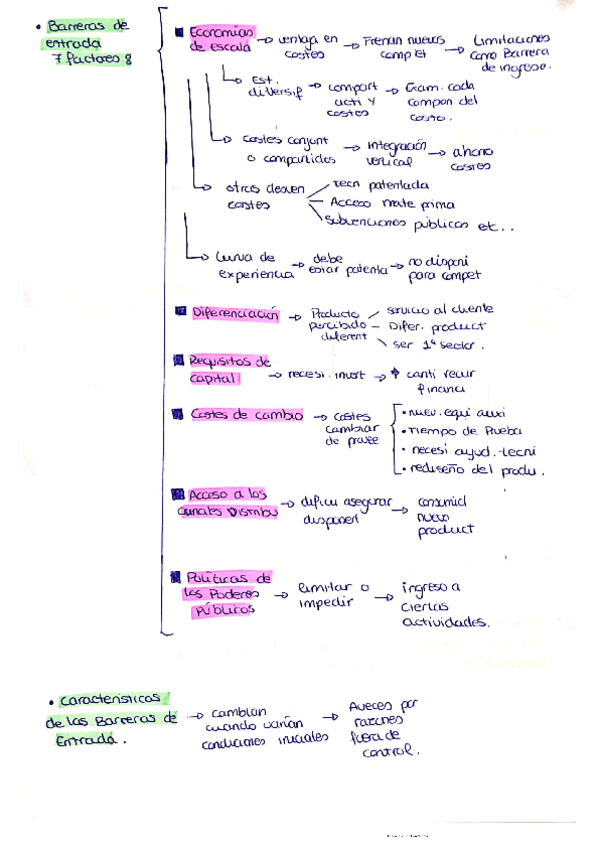 • Barreras de
entrada
7 factores 8
Economías
de escala → ventaja en
costes → Frenan nuevos
complet → Limitaciones
como Barrera
de ingreso.
Est.
diversif → compart
acti y
costes → Exam. cada
compon del
costo.
costes conjunt
o compartidos → integración
vertical → ahorro
costes
otras desven
costes
Tecn patentada
Acceso mate prima
Subvenciones públicas etc..
Curva de
experiencia → debe
estar patenta → no disponi
para compet
Diferenciación → Producto
percibido
diferent
servicio al cliente
Difer. product
ser 1º sector.
Requisitos de
capital → necesi. invert → ↑ canti recur
financi
Costes de cambio → costes
cambiar
de provee
• nuev. equi auxi
• Tiempo de Prueba
• necesi ayud. tecni
• rediseño del produ.
Acceso a los
canales Distribu → dificu asegurar
disponeri → consumid
nuevo
product
Políticas de
los Poderes
Públicos → limitar o
impedir → ingreso a
ciertas
actividades.
• Características
de las Barreras de
Entrada. → cambian
cuando varían
condiciones iniciales → Aveces por
razones
fuera de
control.